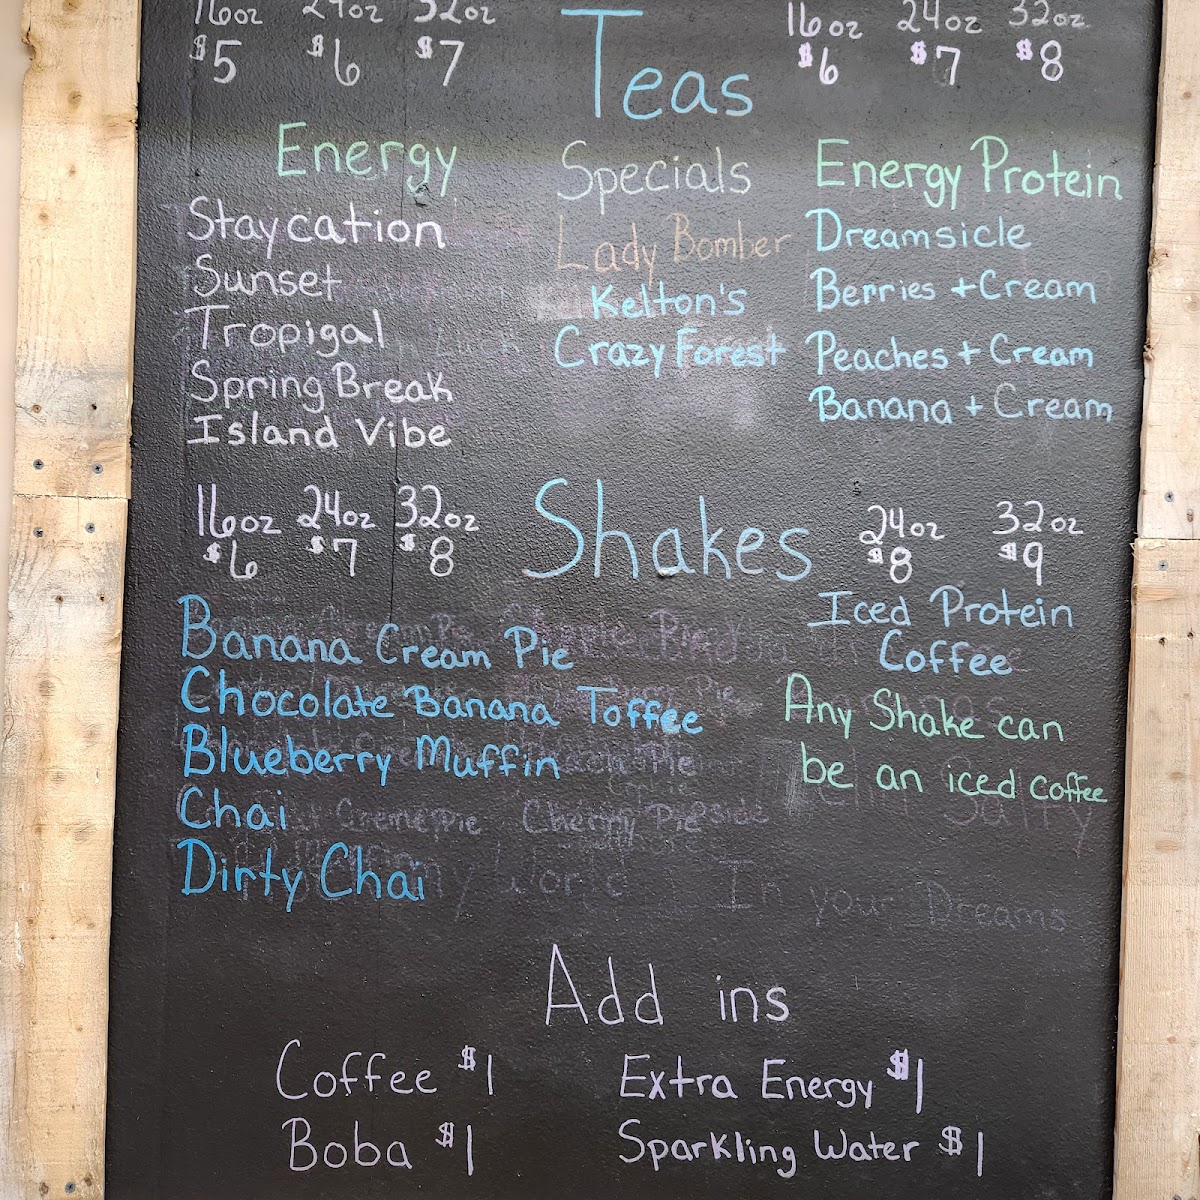 16oz 24oz 32oz
$5 $6 $7
Teas
16oz 24oz 32oz
$6 $7 $8
Energy
Staycation
Sunset
Tropigal
Spring Break
Island Vibe
Specials
Lady Bomber
Kelton's
Crazy Forest
Energy Protein
Dreamsicle
Berries + Cream
Peaches + Cream
Banana + Cream
Shakes
16oz 24oz 32oz
$6 $7 $8
Banana Cream Pie
Chocolate Banana Toffee
Blueberry Muffin
Chai
Dirty Chai
24oz 32oz
$8 $9
Iced Protein
Coffee
Any Shake can
be an iced coffee
Cherry Pie
In your Dreams
Add ins
Coffee $1
Boba $1
Extra Energy $1
Sparkling Water $1